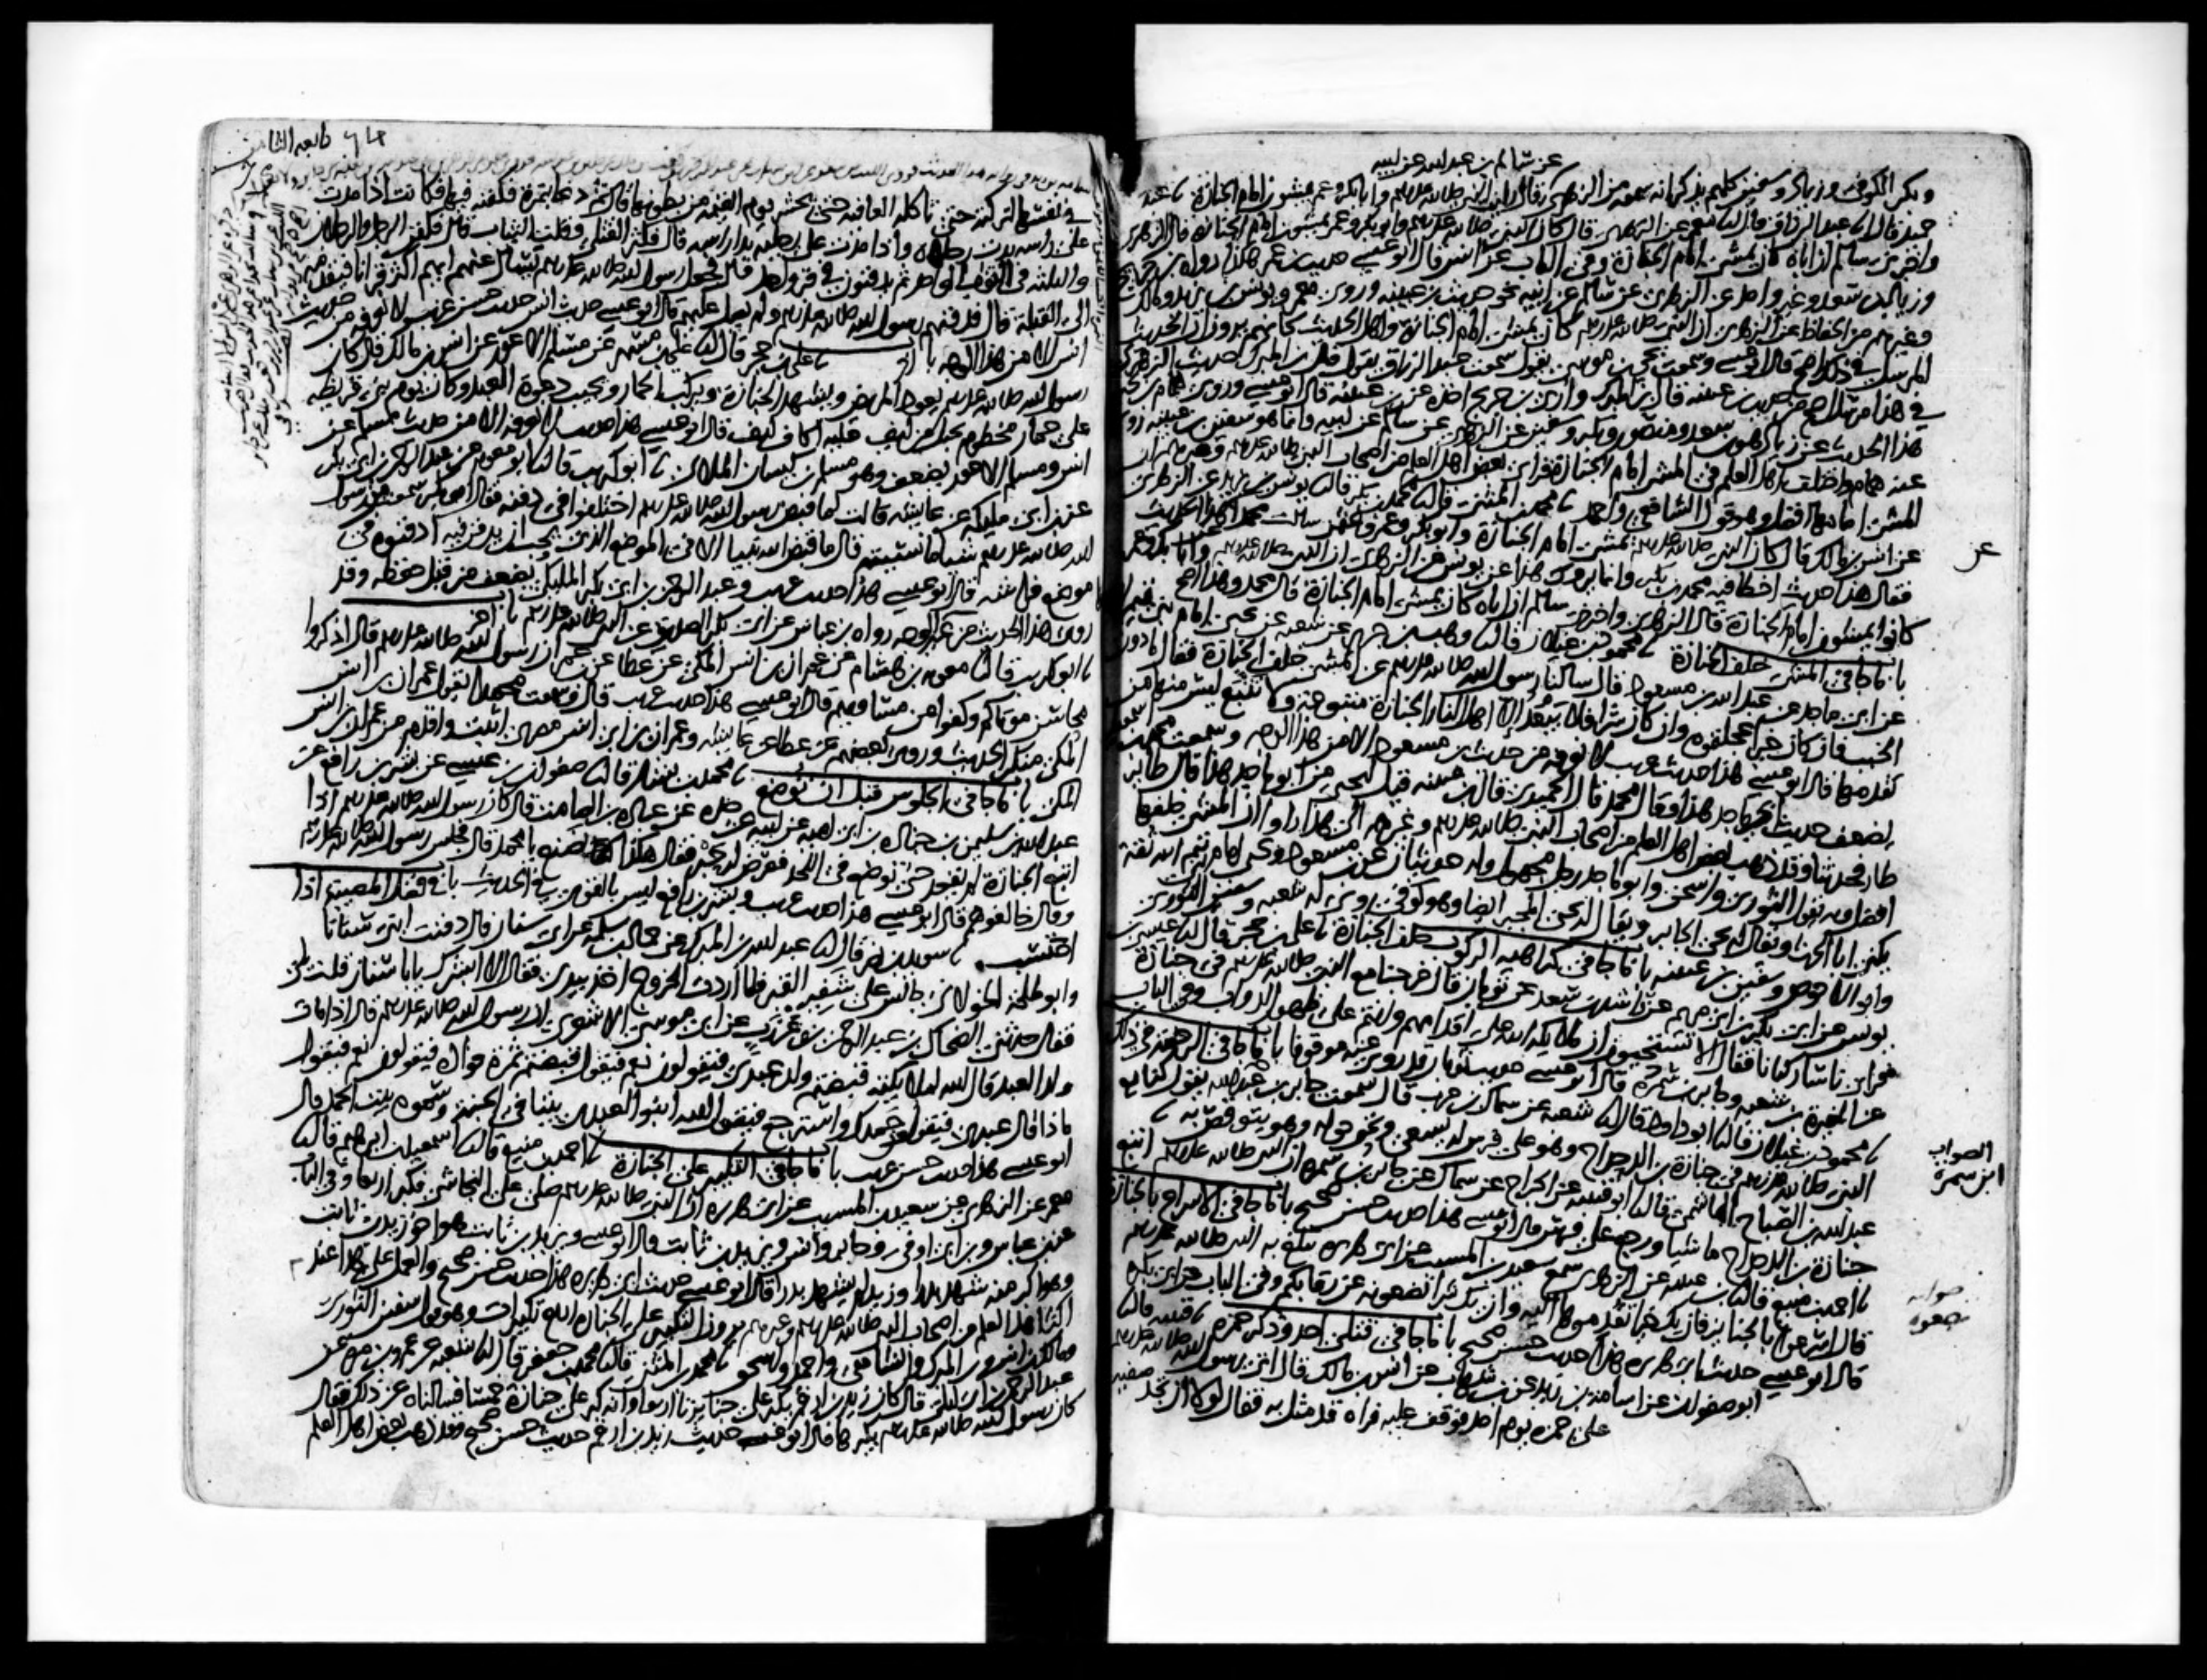 عن سالم بن عبد الله عن ابيه
وبكر الكوفي وزياد وسفين كلهم يذكر انه سمعه من الزهري عن سالم عن ابيه قال رايت النبي صلى الله عليه وسلم وابا بكر وعمر يمشون امام الجنازة نا عبد
حميد قال انا عبد الرزاق قال انا معمر عن الزهري قال كان النبي صلى الله عليه وسلم وابو بكر وعمر يمشون امام الجنازة قال الزهري
واخبرني سالم ان اباه كان يمشي امام الجنازة وفي الباب عن انس قال ابو عيسى حديث ابن عمر هكذا رواه ابن جريج
وزياد بن سعد وغير واحد عن الزهري عن سالم عن ابيه نحو حديث بن عيينه وروى معمر ويونس بن يزيد ومالك
وغيرهم من الحفاظ عن الزهري ان النبي صلى الله عليه وسلم كان يمشي امام الجنازة واهل الحديث كانهم يرون ان الحديث
المرسل في ذلك اصح قال ابو عيسى وسمعت يحيى بن موسى يقول سمعت عبد الرزاق يقول قال بن المبارك حديث الزهري
في هذا مرسل اصح من حديث بن عيينه قال بن المبارك وارى بن جريج اخذه عن بن عيينه قال ابو عيسى وروى همام بن يحيى
هذا الحديث عن زياد وهو بن سعد ومنصور وبكر وسفين عن الزهري عن سالم عن ابيه وانما هو سفين بن عيينه روى
عنه همام واختلف اهل العلم في المشي امام الجنازة فراى بعض اهل العلم من اصحاب النبي صلى الله عليه وسلم وغيرهم ان
المشي امامها افضل وهو قول الشافعي واحمد نا محمد بن المثنى قال نا محمد بن بكر قال نا يونس بن يزيد عن الزهري
عن انس بن مالك قال كان النبي صلى الله عليه وسلم يمشي امام الجنازة وابو بكر وعمر وعثمن سالت محمدا عن هذا الحديث
عن
فقال هذا حديث اخطا فيه محمد بن بكر وانما يروى هذا عن يونس عن الزهري ان النبي صلى الله عليه وسلم وابا بكر وعمر
كانوا يمشون امام الجنازة قال الزهري واخبرني سالم ان اباه كان يمشي امام الجنازة قال محمد وهذا اصح
باب ما جا في المشي خلف الجنازة نا محمود بن غيلان قال نا وهب بن جرير عن شعبه عن يحيى امام بني تيم الله
عن ابي ماجد عن عبد الله بن مسعود قال سالنا رسول الله صلى الله عليه وسلم عن المشي خلف الجنازة فقال ما دون
الخبب فان كان خيرا عجلتموه وان كان شرا فلا يبعد الا اهل النار الجنازة متبوعة ولا تتبع ليس منها من
تقدمها قال ابو عيسى هذا حديث غريب لا نعرفه من حديث بن مسعود الا من هذا الوجه وسمعت محمد بن اسمعيل
يضعف حديث ابي ماجد هذا وقال محمد قال الحميدي قال بن عيينه قيل ليحيى من ابو ماجد هذا قال طائر
طار فحدثنا وقد ذهب بعض اهل العلم من اصحاب النبي صلى الله عليه وسلم وغيرهم الى هذا راوا ان المشي خلفها
افضل وبه يقول الثوري واسحق وابو ماجد رجل مجهول وله حديثان عن بن مسعود ويحيى امام بني تيم الله ثقة
يكنى ابا الحرث ويقال له يحيى الجابر ويقال له يحيى المجبر ايضا وهو كوفي روى له شعبه وسفين الثوري
وابو الاحوص وسفين بن عيينه باب ما جا في كراهيه الركوب خلف الجنازة نا علي بن حجر قال نا عيسى بن
يونس عن ابي بكر بن ابي مريم عن راشد بن سعد عن ثوبان قال خرجنا مع النبي صلى الله عليه وسلم في جنازة
فراى ناسا ركبانا فقال الا تستحيون ان ملايكه الله على اقدامهم وانتم على ظهور الدواب وفي الباب
عن المغيرة بن شعبه وجابر بن سمرة قال ابو عيسى حديث ثوبان قد روى عنه موقوفا باب ما جا في الرخصة في ذلك
نا محمود بن غيلان قال نا ابو داود قال نا شعبه عن سماك بن حرب قال سمعت جابر بن عبد الله يقول كنا مع
الصواب
ابن سمرة
النبي صلى الله عليه وسلم في جنازة بن الدحداح وهو على فرس له يسعى ونحن حوله وهو يتوقص به نا
عبد الله بن الصباح الهاشمي قال نا ابو قتيبه عن الجراح عن سماك عن جابر بن سمرة ان النبي صلى الله عليه وسلم اتبع
جنازة بن الدحداح ماشيا ورجع على فرس قال ابو عيسى هذا حديث حسن صحيح باب ما جا في الاسراع بالجنازة
نا احمد بن منيع قال نا بن عيينه عن الزهري سمع سعيد بن المسيب عن ابي هريرة يبلغ به النبي صلى الله عليه وسلم
قال اسرعوا بالجنازة فان يك خيرا تقدموها اليه وان يك شرا تضعونه عن رقابكم وفي الباب عن ابي بكرة
صوابه
تضعوه
قال ابو عيسى حديث ابي هريرة هذا حديث حسن صحيح باب ما جا في قتلى احد وذكر حمزه نا قتيبه قال نا
ابو صفوان عن اسامة بن زيد عن بن شهاب عن انس بن مالك قال اتى رسول الله صلى الله عليه وسلم
على حمزه يوم احد فوقف عليه فراه قد مثل به فقال لولا ان تجد صفيه
تابعه الثامن
في نفسها لتركته حتى تاكله العافيه حتى يحشر يوم القيمة من بطونها قال ثم دعا بنمرة فكفنه فيها فكانت اذا مدت
على راسه بدت رجلاه واذا مدت على رجليه بدا راسه قال فكثر القتلى وقلت الثياب قال فكفن الرجل والرجلان
والثلثه في الثوب الواحد ثم يدفنون في قبر واحد قال فجعل رسول الله صلى الله عليه وسلم يسال عنهم ايهم اكثر قرانا فيقدمه
الى القبلة قال فدفنهم رسول الله صلى الله عليه وسلم ولم يصل عليهم قال ابو عيسى حديث انس حديث حسن غريب لا نعرفه من حديث
انس الا من هذا الوجه باب اخر نا علي بن حجر قال نا علي بن مسهر عن مسلم الاعور عن انس بن مالك قال كان
رسول الله صلى الله عليه وسلم يعود المريض ويشهد الجنازة ويركب الحمار ويجيب دعوة العبد وكان يوم بني قريظه
على حمار مخطوم بحبل من ليف عليه اكاف ليف قال ابو عيسى هذا حديث لا نعرفه الا من حديث مسلم عن
انس ومسلم الاعور يضعف وهو مسلم بن كيسان الملائي نا ابو كريب قال نا ابو معويه عن عبد الرحمن بن ابي بكر
عن ابن ابي مليكه عن عايشه قالت لما قبض رسول الله صلى الله عليه وسلم اختلفوا في دفنه فقال ابو بكر سمعت من رسول
الله صلى الله عليه وسلم شيئا ما نسيته قال ما قبض الله نبيا الا في الموضع الذي يحب ان يدفن فيه ادفنوه في
موضع فراشه قال ابو عيسى هذا حديث غريب وعبد الرحمن بن ابي بكر المليكي يضعف من قبل حفظه وقد
روى هذا الحديث من غير وجه رواه بن عباس عن ابي بكر الصديق عن النبي صلى الله عليه وسلم باب اخر
نا ابو كريب قال نا معويه بن هشام عن عمران بن انس المكي عن عطا عن بن عمر ان رسول الله صلى الله عليه وسلم قال اذكروا
محاسن موتاكم وكفوا عن مساويهم قال ابو عيسى هذا حديث غريب قال سمعت محمدا يقول عمران بن انس
المكي منكر الحديث وروى بعضهم عن عطا عن عايشه وعمران بن ابي انس مصري اثبت واقدم من عمران بن انس
المكي باب ما جا في الجلوس قبل ان توضع نا محمد بن بشار قال نا صفوان بن عيسى عن بشر بن رافع عن
عبد الله بن سليمن بن جناده بن ابي اميه عن ابيه عن جده عن عباده بن الصامت قال كان رسول الله صلى الله عليه وسلم اذا
اتبع الجنازة لم يقعد حتى توضع في اللحد فعرض له حبر فقال هكذا نصنع يا محمد قال فجلس رسول الله صلى الله عليه وسلم
وقال خالفوهم قال ابو عيسى هذا حديث غريب وبشر بن رافع ليس بالقوي في الحديث باب في فضل المصيبة اذا
احتسب نا سويد بن نصر قال نا عبد الله بن المبارك عن حماد بن سلمه عن ابي سنان قال دفنت ابني سنانا
وابو طلحة الخولاني جالس على شفير القبر فلما اردت الخروج اخذ بيدي فقال الا ابشرك يابا سنان قلت بلى
فقال حدثني الضحاك بن عبد الرحمن بن عرزب عن ابي موسى الاشعري ان رسول الله صلى الله عليه وسلم قال اذا مات
ولد العبد قال الله لملايكته قبضتم ولد عبدي فيقولون نعم فيقول قبضتم ثمرة فواده فيقولون نعم فيقول
ماذا قال عبدي فيقولون حمدك واسترجع فيقول الله ابنوا لعبدي بيتا في الجنة وسموه بيت الحمد قال
ابو عيسى هذا حديث حسن غريب باب ما جا في التكبير على الجنازة نا احمد بن منيع قال نا اسمعيل بن ابرهيم قال نا
معمر عن الزهري عن سعيد بن المسيب عن ابي هريره ان النبي صلى الله عليه وسلم صلى على النجاشي فكبر اربعا وفي الباب
عن بن عباس وبن ابي اوفى وجابر وانس ويزيد بن ثابت قال ابو عيسى ويزيد بن ثابت هو اخو زيد بن ثابت
وهو اكبر منه شهد بدرا وزيد لم يشهد بدرا قال ابو عيسى حديث ابي هريره هذا حديث حسن صحيح والعمل على هذا عند
اكثر اهل العلم من اصحاب النبي صلى الله عليه وسلم وغيرهم يرون التكبير على الجنازه اربع تكبيرات وهو قول سفين الثوري
ومالك بن انس وبن المبارك والشافعي واحمد واسحق نا محمد بن المثنى قال نا محمد بن جعفر قال نا شعبه عن عمرو بن مره عن
عبد الرحمن بن ابي ليلى قال كان زيد بن ارقم يكبر على جنايزنا اربعا وانه كبر على جنازة خمسا فسالناه عن ذلك فقال
كان رسول الله صلى الله عليه وسلم يكبرها قال ابو عيسى حديث زيد بن ارقم حديث حسن صحيح وقد ذهب بعض اهل العلم